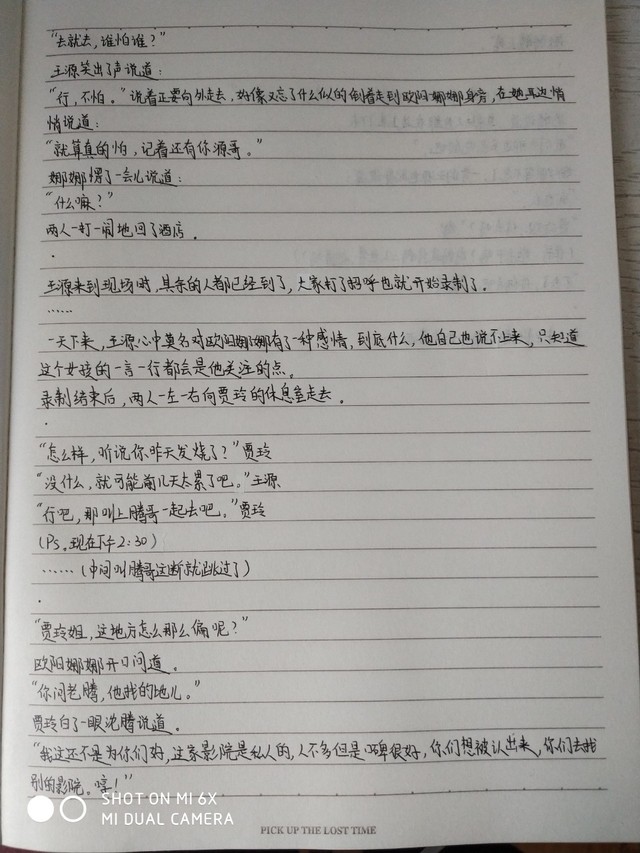 “去就去，谁怕谁？”
王源笑出了声说道：
“行，不怕。”说着正要向外走去，好像又忘了什么似的倒着走到欧阳娜娜身旁，在她耳边悄
悄说道：
“就算真的怕，记着还有你源哥。”
娜娜愣了一会儿说道：
“什么嘛？”
两人一打一闹地回了酒店．
．
王源来到现场时，其余的人都已经到了，大家打了招呼也就开始录制了．
……
一天下来，王源心中莫名对欧阳娜娜有了一种感情，到底什么，他自己也说不上来，只知道
这个女孩的一言一行都会是他关注的点。
录制结束后，两人一左一右向贾玲的休息室走去．
．
“怎么样，听说你昨天发烧了？”贾玲
“没什么，就可能前几天太累了吧。”王源
“行吧，那叫上腾哥一起去吧。”贾玲
（Ps．现在下午2：30）
……（中间叫腾哥这断就跳过了）
．
“贾玲姐，这地方怎么那么偏呢？”
欧阳娜娜开口问道。
“你问老腾，他找的地儿。”
贾玲白了一眼沈腾说道．
“我这还不是为你们好，这家影院是私人的，人不多但是口碑很好，你们想被认出来，你们去找
别的影院。哼！”
SHOT ON MI 6X
MI DUAL CAMERA
PICK UP THE LOST TIME